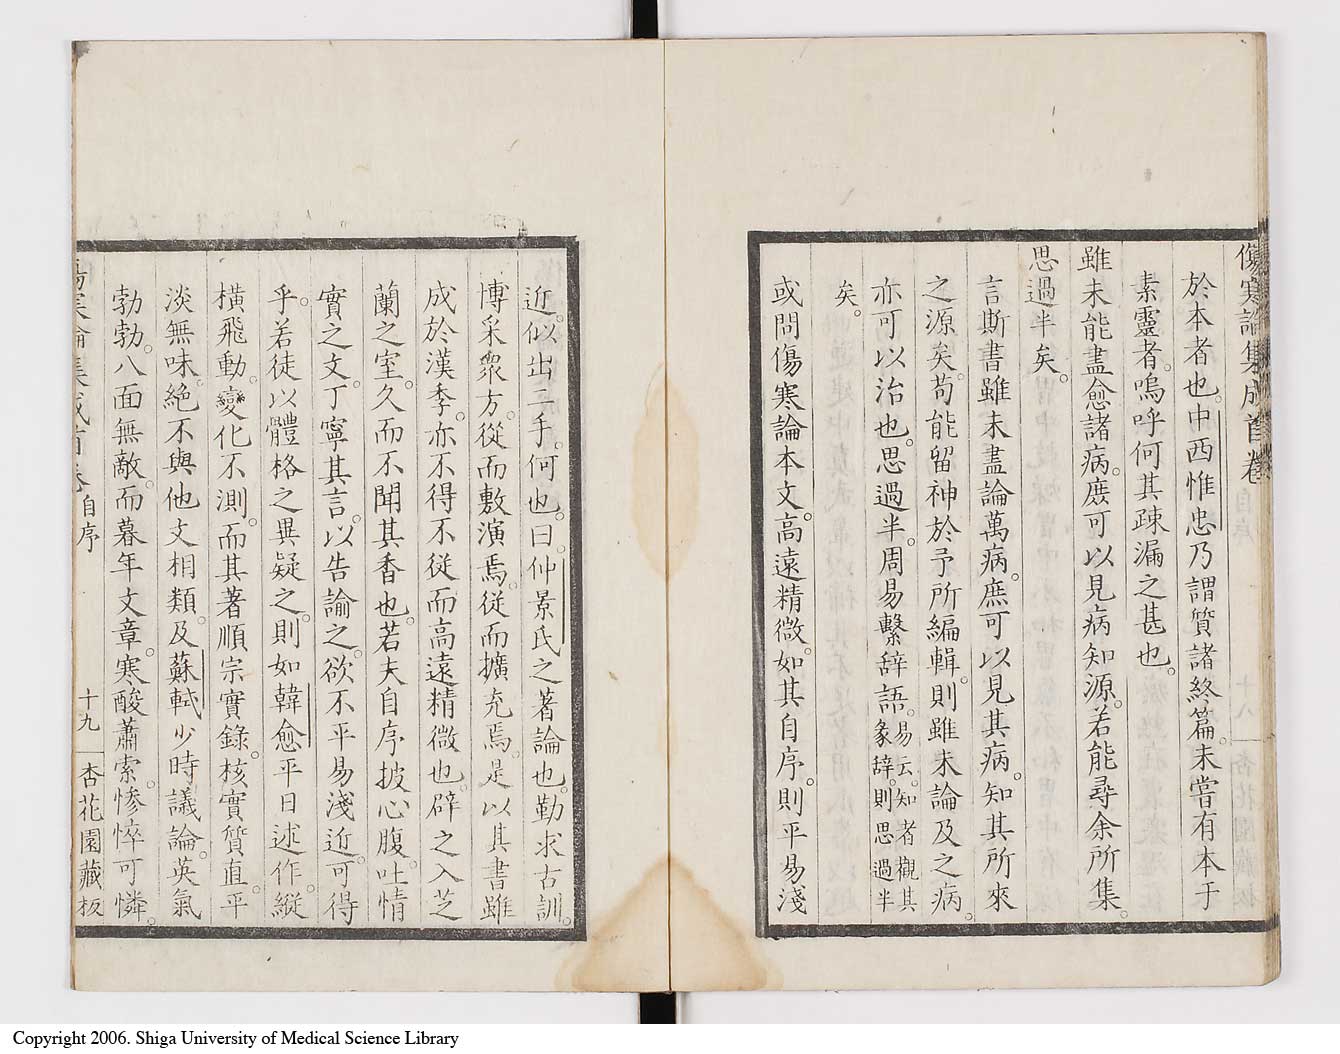 傷寒論集成首卷
於本者也。中西惟忠乃謂質諸終篇。未嘗有本于
素靈者。嗚呼何其疎漏之甚也。
雖未能盡愈諸病。庶可以見病知源。若能尋余所集。
思過半矣。
言斯書雖未盡論萬病。庶可以見其病。知其所來
之源矣。苟能留神於予所編輯。則雖未論及之病。
亦可以治也。思過半。周易繫辭語。易云。知者觀其彖辭。則思過半
矣。
或問傷寒論本文。高遠精微。如其自序。則平易淺
近。似出二手。何也。曰。仲景氏之著論也。勤求古訓。
博采衆方。從而敷演焉。從而擴充焉。是以其書雖
成於漢季。亦不得不從而高遠精微也。辟之入芝
蘭之室。久而不聞其香也。若夫自序披心腹。吐情
實之文。丁寧其言。以告諭之。欲不平易淺近。可得
乎。若徒以體格之異疑之。則如韓愈平日述作。縱
橫飛動。變化不測。而其著順宗實錄。核實質直。平
淡無味。絕不與他文相類。及蘇軾少時議論。英氣
勃勃。八面無敵。而暮年文章。寒酸蕭索。慘悴可憐。
傷寒論集成首卷 自序 十九 杏花園藏板
Copyright 2006. Shiga University of Medical Science Library